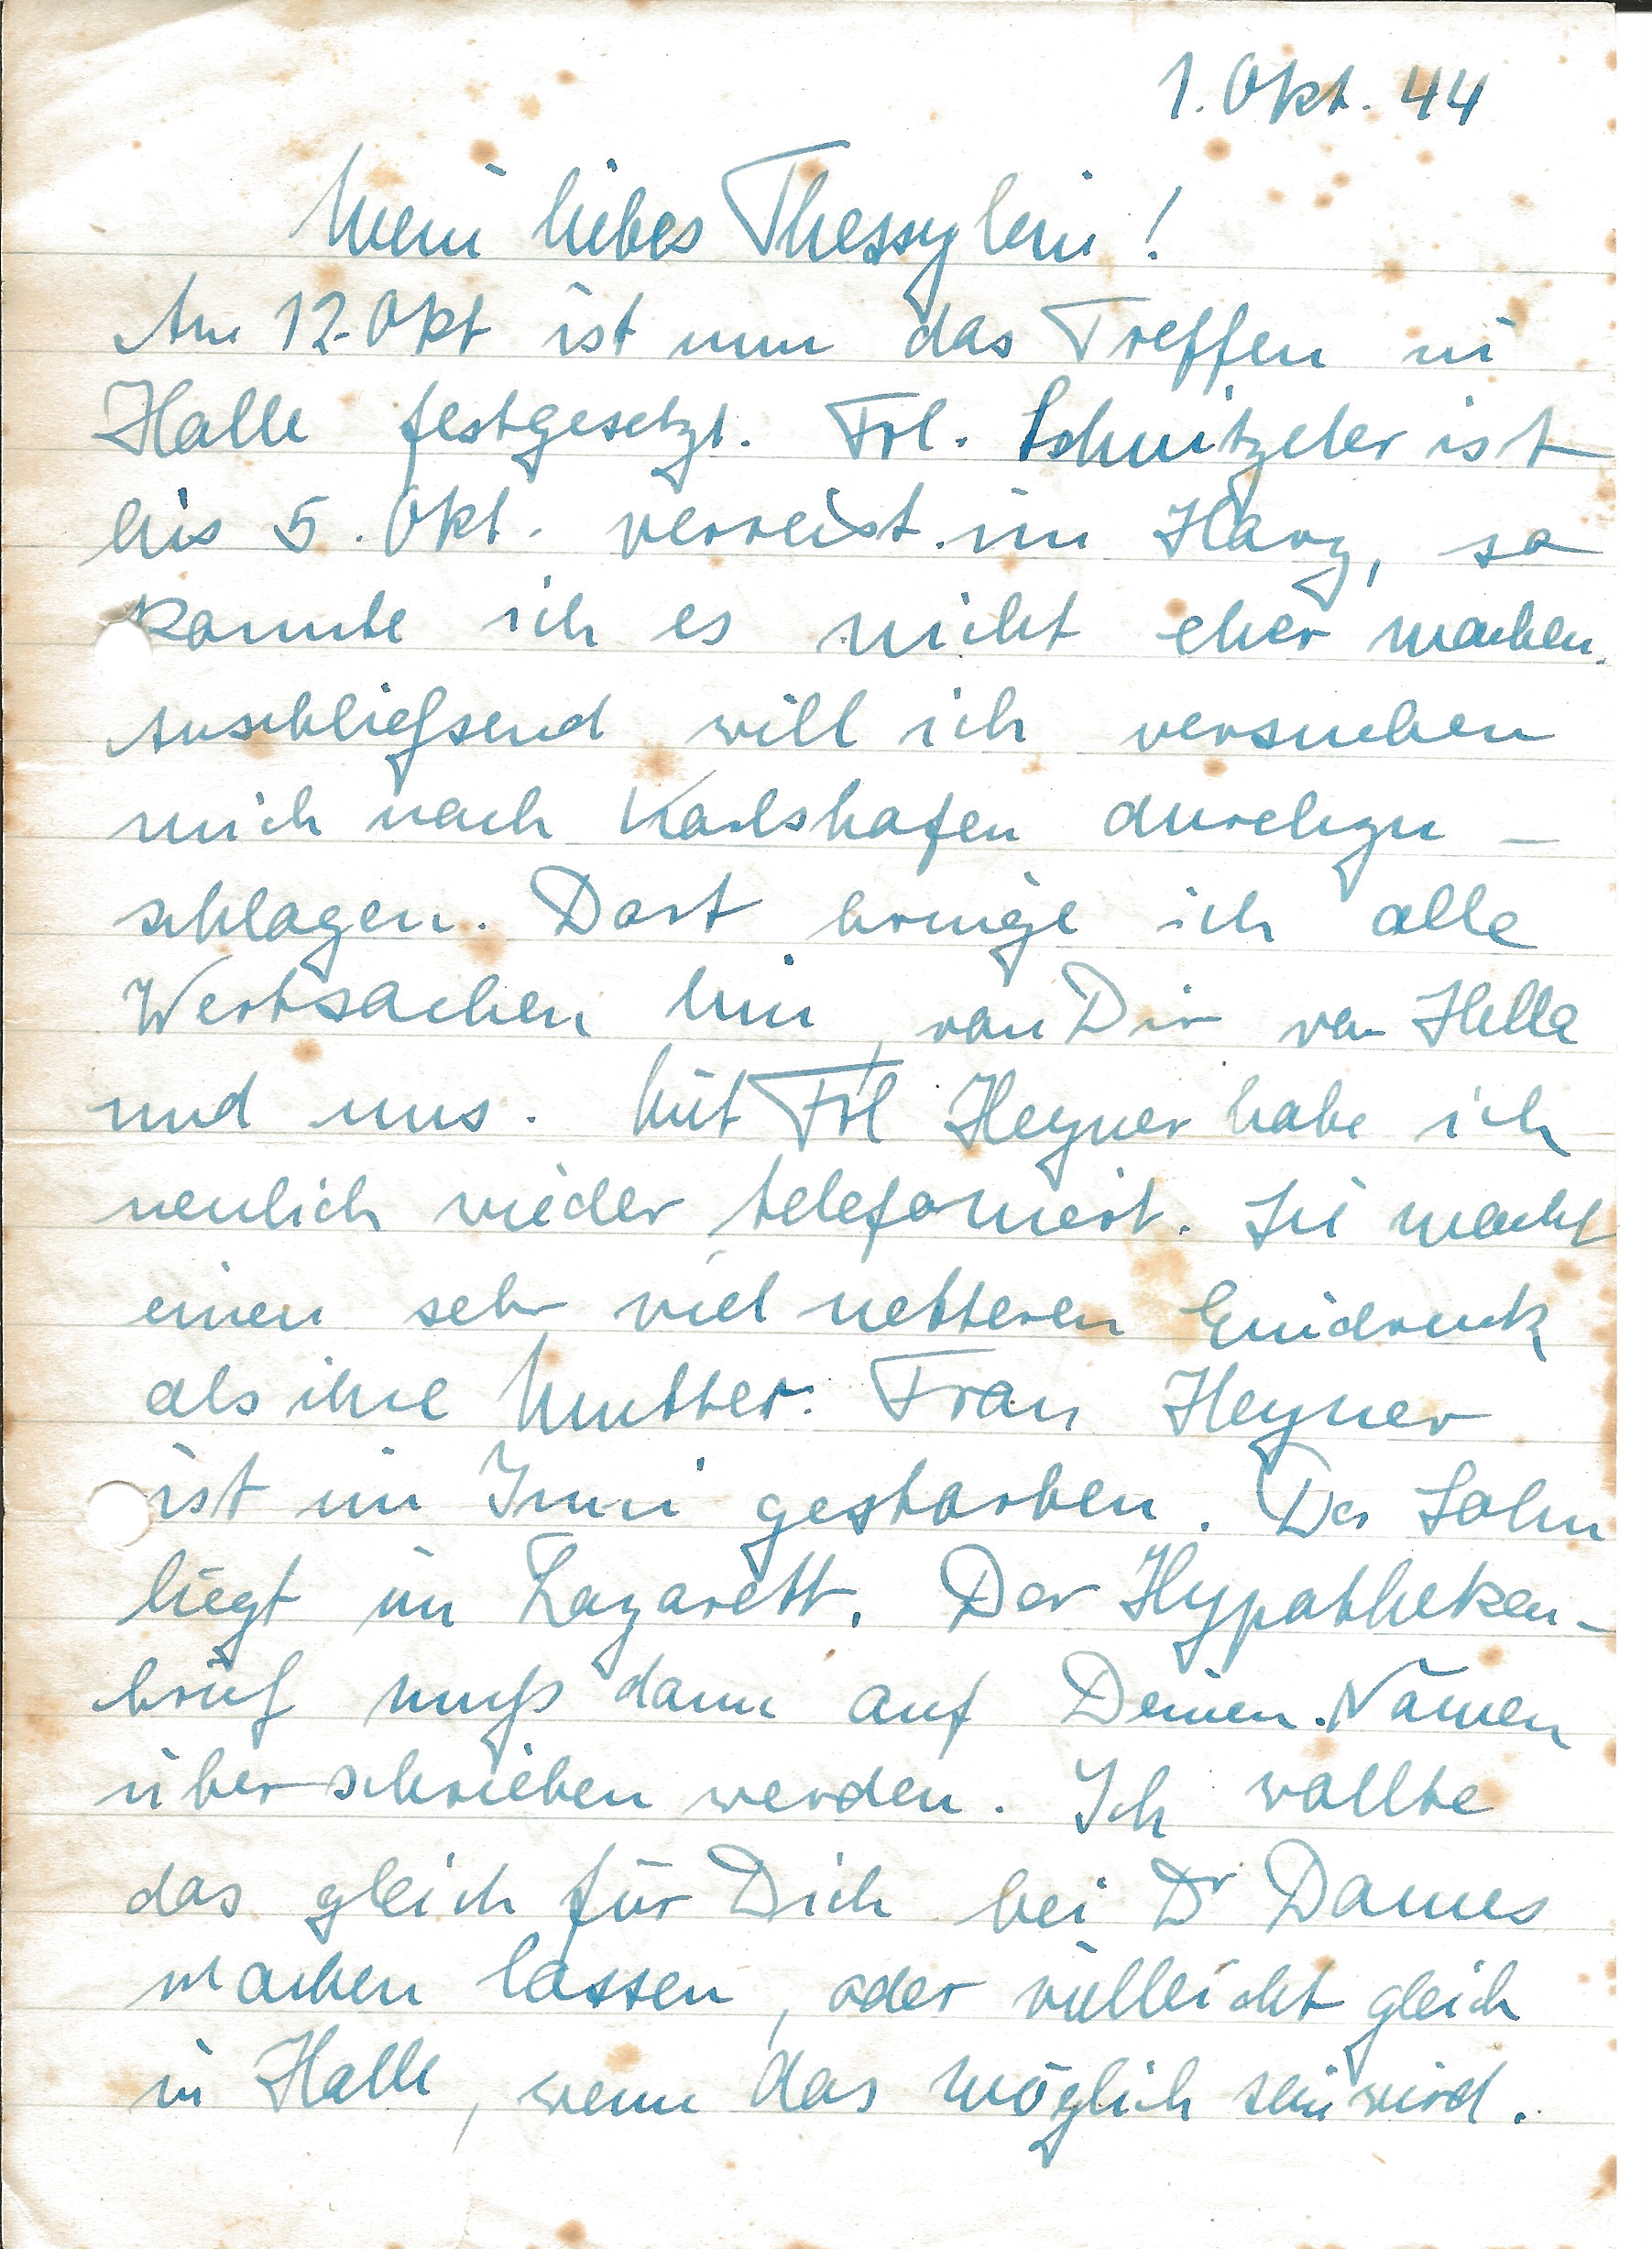 1. Okt. 44
Mein liebes Thessylein!
Am 12. Okt ist nun das Treffen in
Halle festgesetzt. Frl. Schnitzeler ist
bis 5. Okt. verreist im Harz, so
konnte ich es nicht eher machen.
Anschließend will ich versuchen
mich nach Karlshafen durchzu-
schlagen. Dort bringe ich alle
Wertsachen hin, von Dir von Hella
und uns. Mit Frl Heyner habe ich
neulich wieder telefoniert. Sie macht
einen sehr viel netteren Eindruck
als ihre Mutter. Frau Heyner
ist im Juni gestorben. Der Sohn
liegt im Lazarett. Der Hypotheken-
brief muß dann auf Deinen Namen
überschrieben werden. Ich wollte
das gleich für Dich bei Dr Dames
machen lassen, oder vielleicht gleich
in Halle, wenn das möglich sein wird.